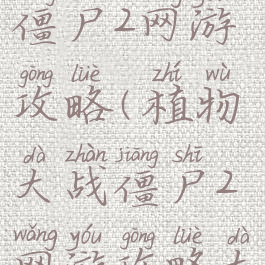 僵尸2网游
gōng lüè zhí wù
攻略(植物
dà zhàn jiāng shī
大战僵尸2
wǎng yóu gōng lüè dà